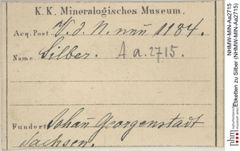 K. K. Mineralogisches Museum.
Acq. Post.
1184.
Name Silber. A a. 2715.
Fundort Johann Georgenstadt
Sachsen.
NHMW-MIN-Aa2715
Etiketten zu Silber (NHMW-MIN-Aa2715)
nhm